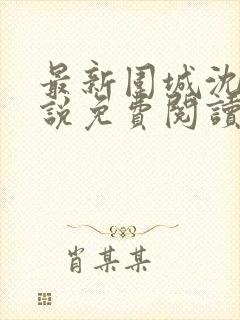 最新围城沈
說免費閱讀
肖某某